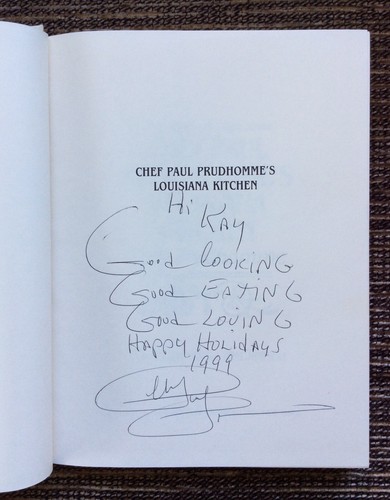 CHEF PAUL PRUDHOMME'S
LOUISIANA KITCHEN
Hi
KAY
Good COOKING
Good EATING
Good LOVING
HAPPY HOLIDAYS
1999